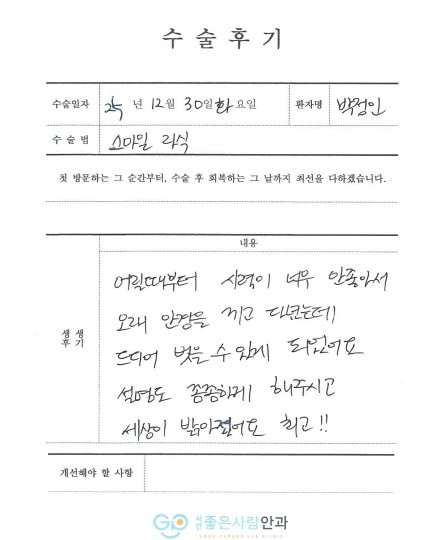 수술후기
수술일자 25년 12월 30일 화요일 환자명 박정인
수술법 스마일 라식
첫 방문하는 그 순간부터, 수술 후 회복하는 그 날까지 최선을 다하겠습니다.
내용
생생후기
어릴때부터 시력이 너무 안좋아서
오래 안경을 끼고 다녔는데
드디어 벗을 수 있게 되었어요
설명도 꼼꼼하게 해주시고
세상이 밝아졌어요 최고!!
개선해야 할 사항
좋은사람안과
GOOD PERSON EYE CLINIC